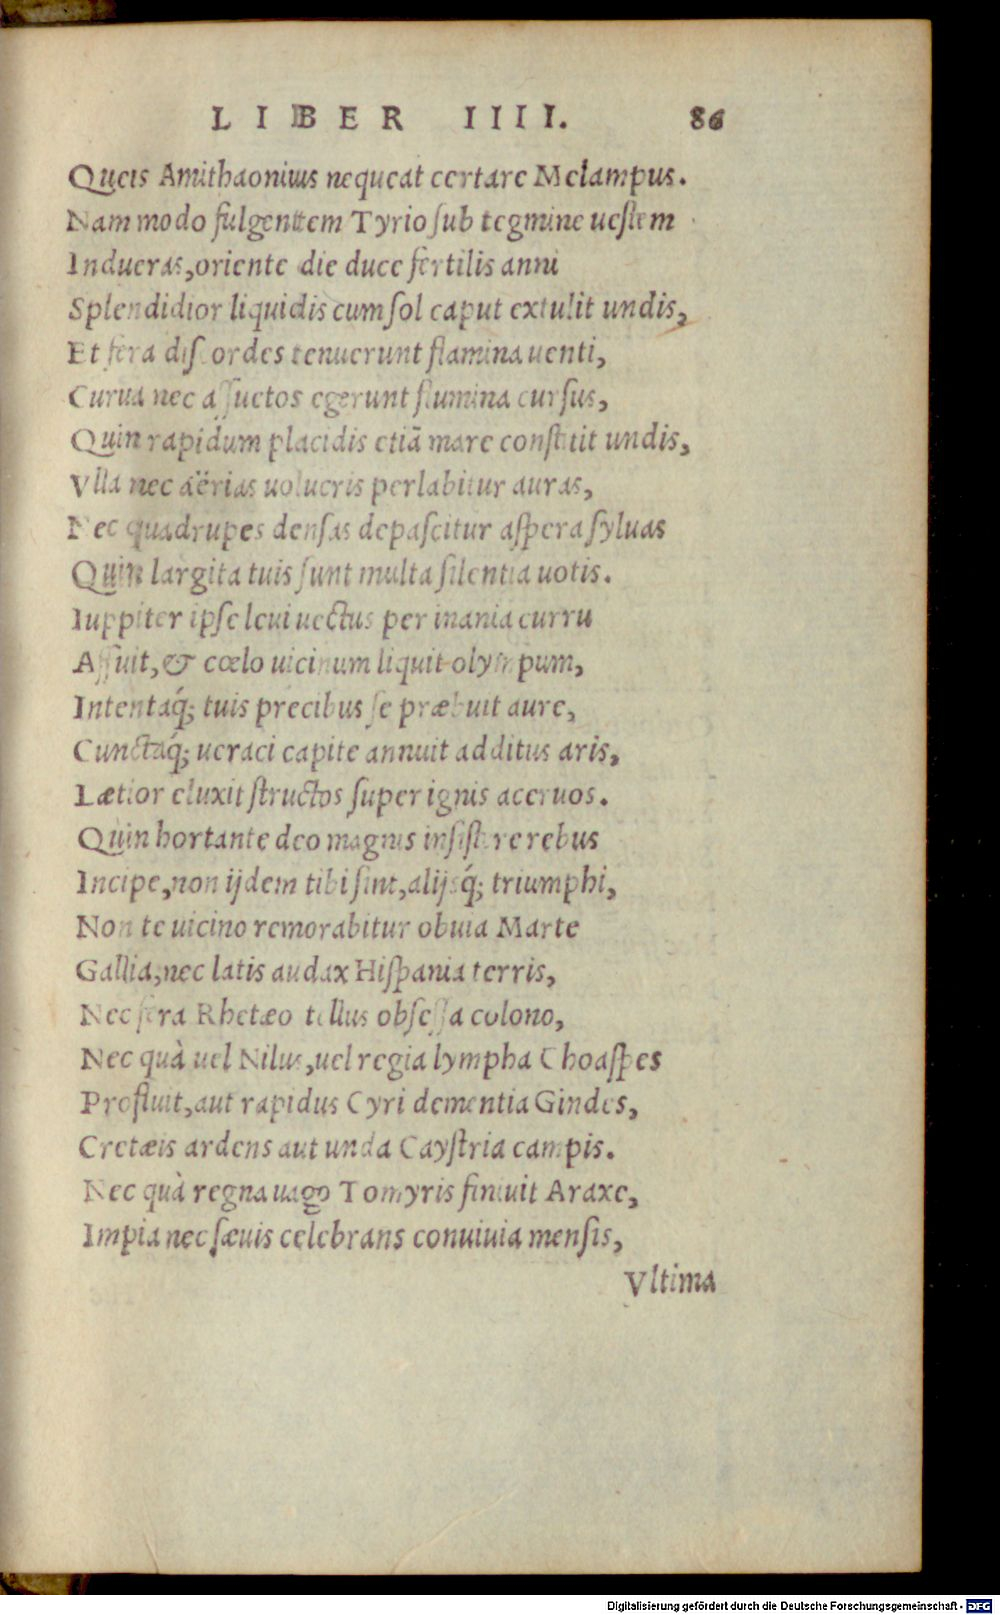 LIBER IIII. 86
Queis Amithaonius nequeat certare Melampus.
Nam modo fulgentem Tyrio sub tegmine uestem
Indueras, oriente die duce fertilis anni
Splendidior liquidis cum sol caput extulit undis,
Et fera discordes tenuerunt flamina uenti,
Curua nec assuetos egerunt flumina cursus,
Quin rapidum placidis etiā mare constitit undis,
Vlla nec aërias uolucris perlabitur auras,
Nec quadrupes densas depascitur aspera syluas
Quin largita tuis sunt multa silentia uotis.
Iuppiter ipse leui uectus per inania curru
Affuit, & cœlo uicinum liquit olympum,
Intentaq́; tuis precibus se præbuit aure,
Cunctaq́; ueraci capite annuit additus aris,
Lætior eluxit structos super ignis aceruos.
Quin hortante deo magnis insistere rebus
Incipe, non ijdem tibi sint, alijsq́; triumphi,
Non te uicino remorabitur obuia Marte
Gallia, nec latis audax Hispania terris,
Nec fera Rhetæo tellus obsessa colono,
Nec quà uel Nilus, uel regia lympha Choaspes
Profluit, aut rapidus Cyri dementia Gindes,
Cretæis ardens aut unda Caystria campis.
Nec quà regna uago Tomyris finiuit Araxe,
Impia nec sæuis celebrans conuiuia mensis,
Vltima
Digitalisierung gefördert durch die Deutsche Forschungsgemeinschaft - DFG